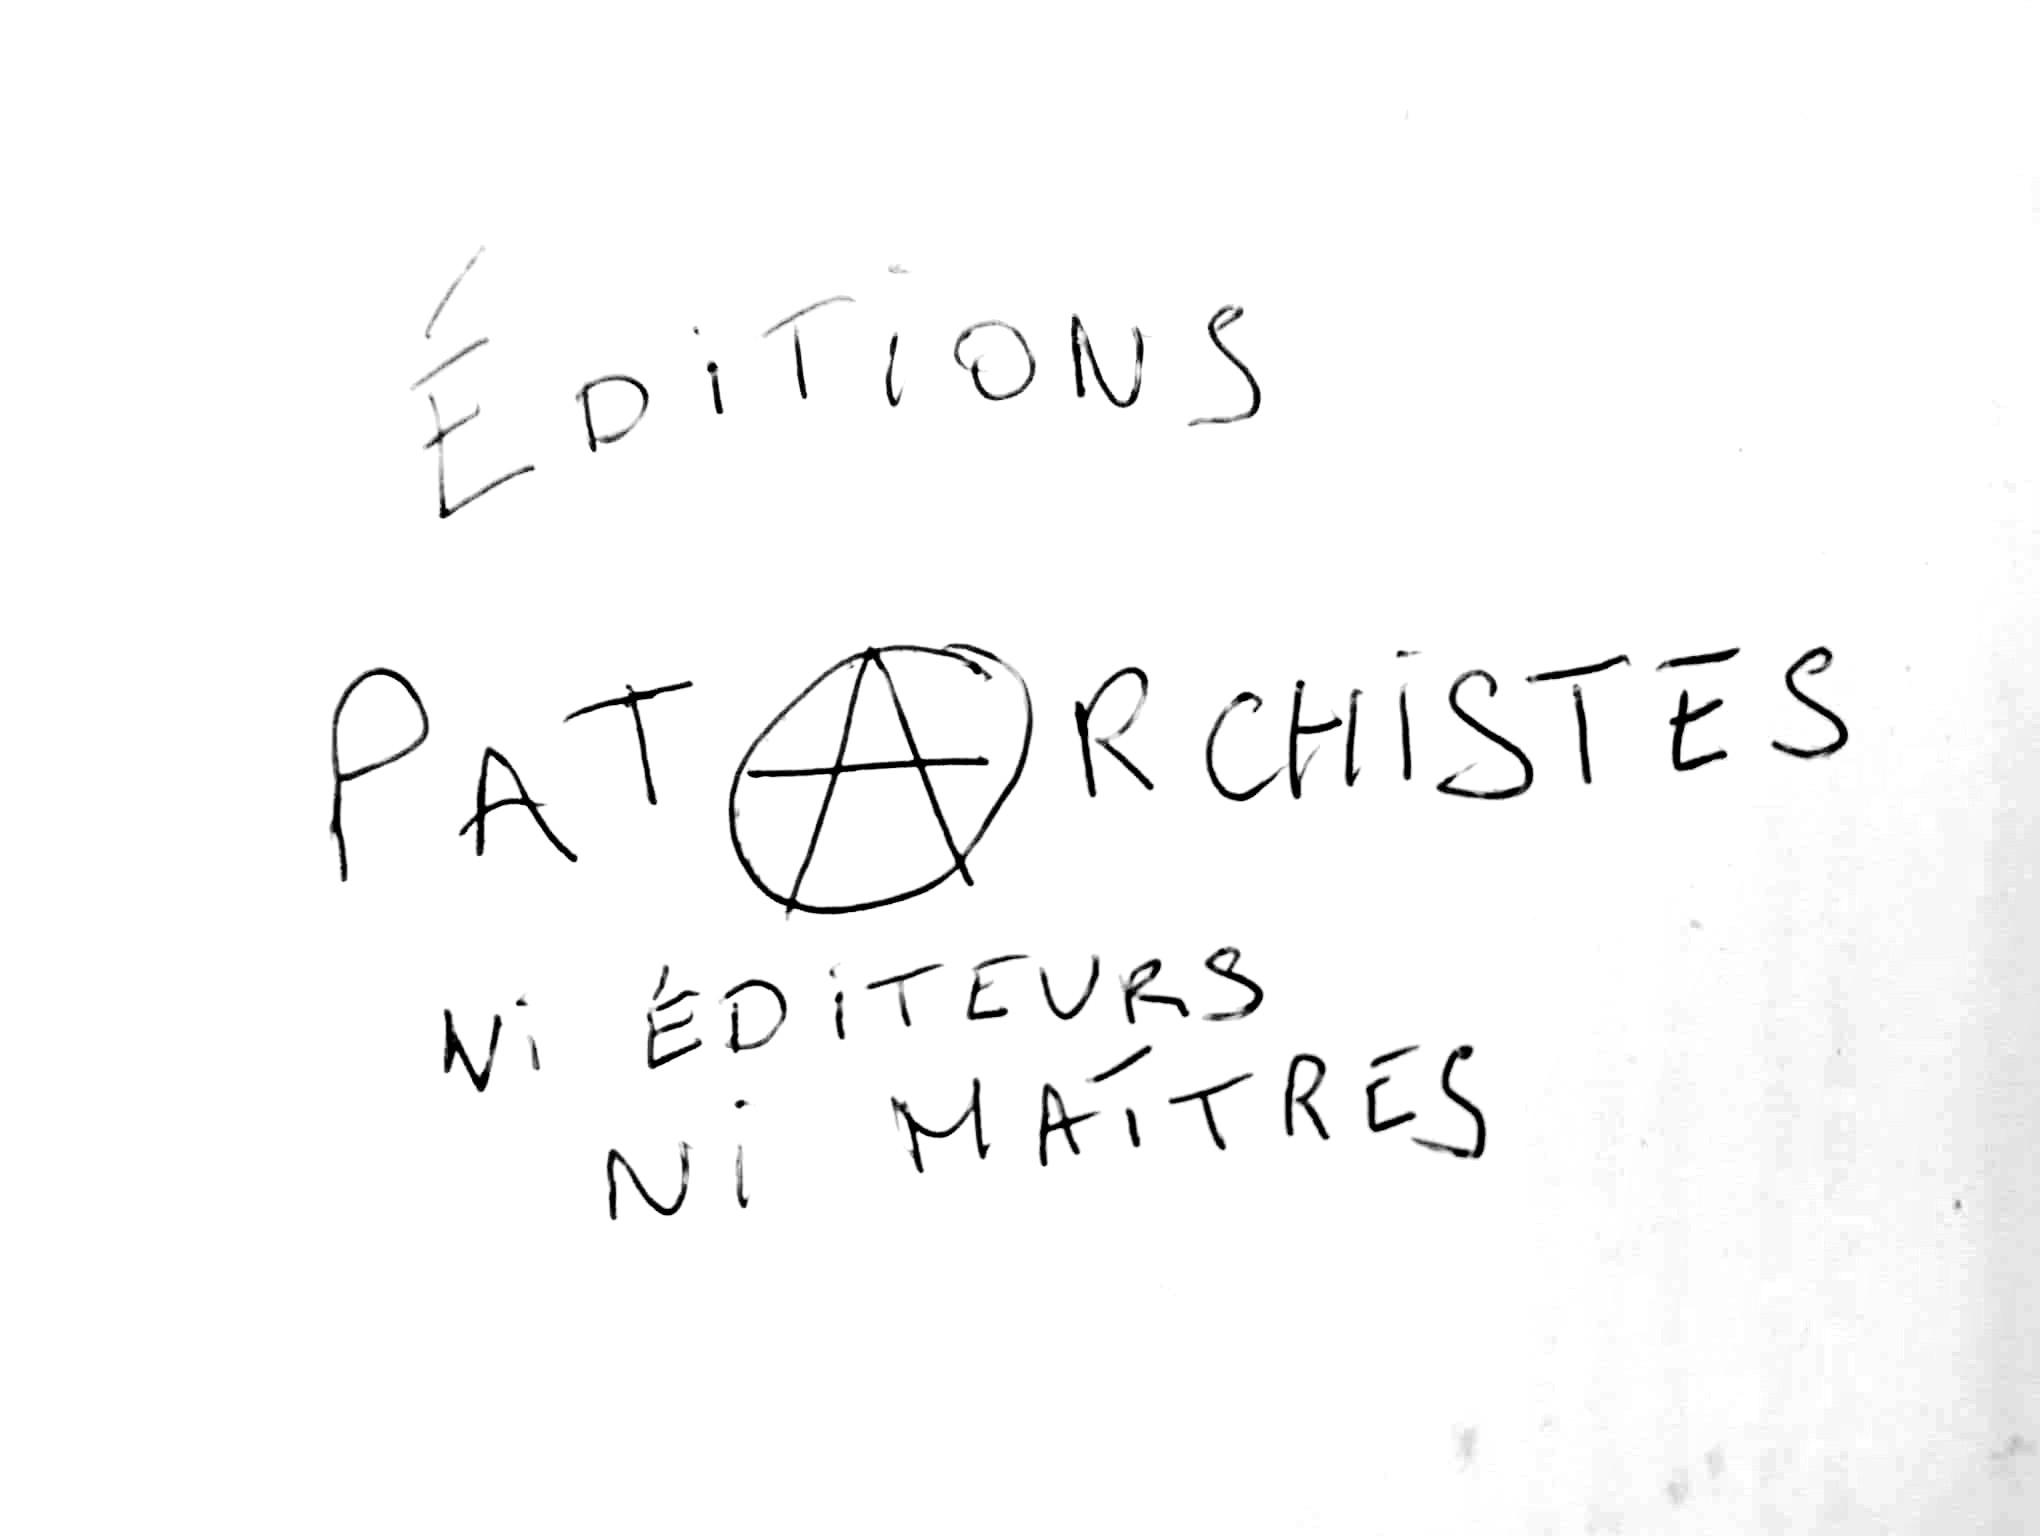 ÉDiTiONS
PATARCHiSTES
Ni ÉDiTEURS
Ni MAÎTRES